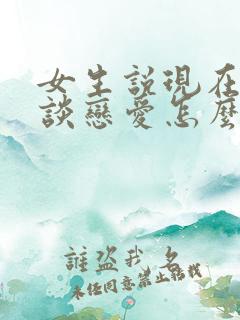 女生說現在
談戀愛怎麼
誰盜我 名
未經同意禁止轉載